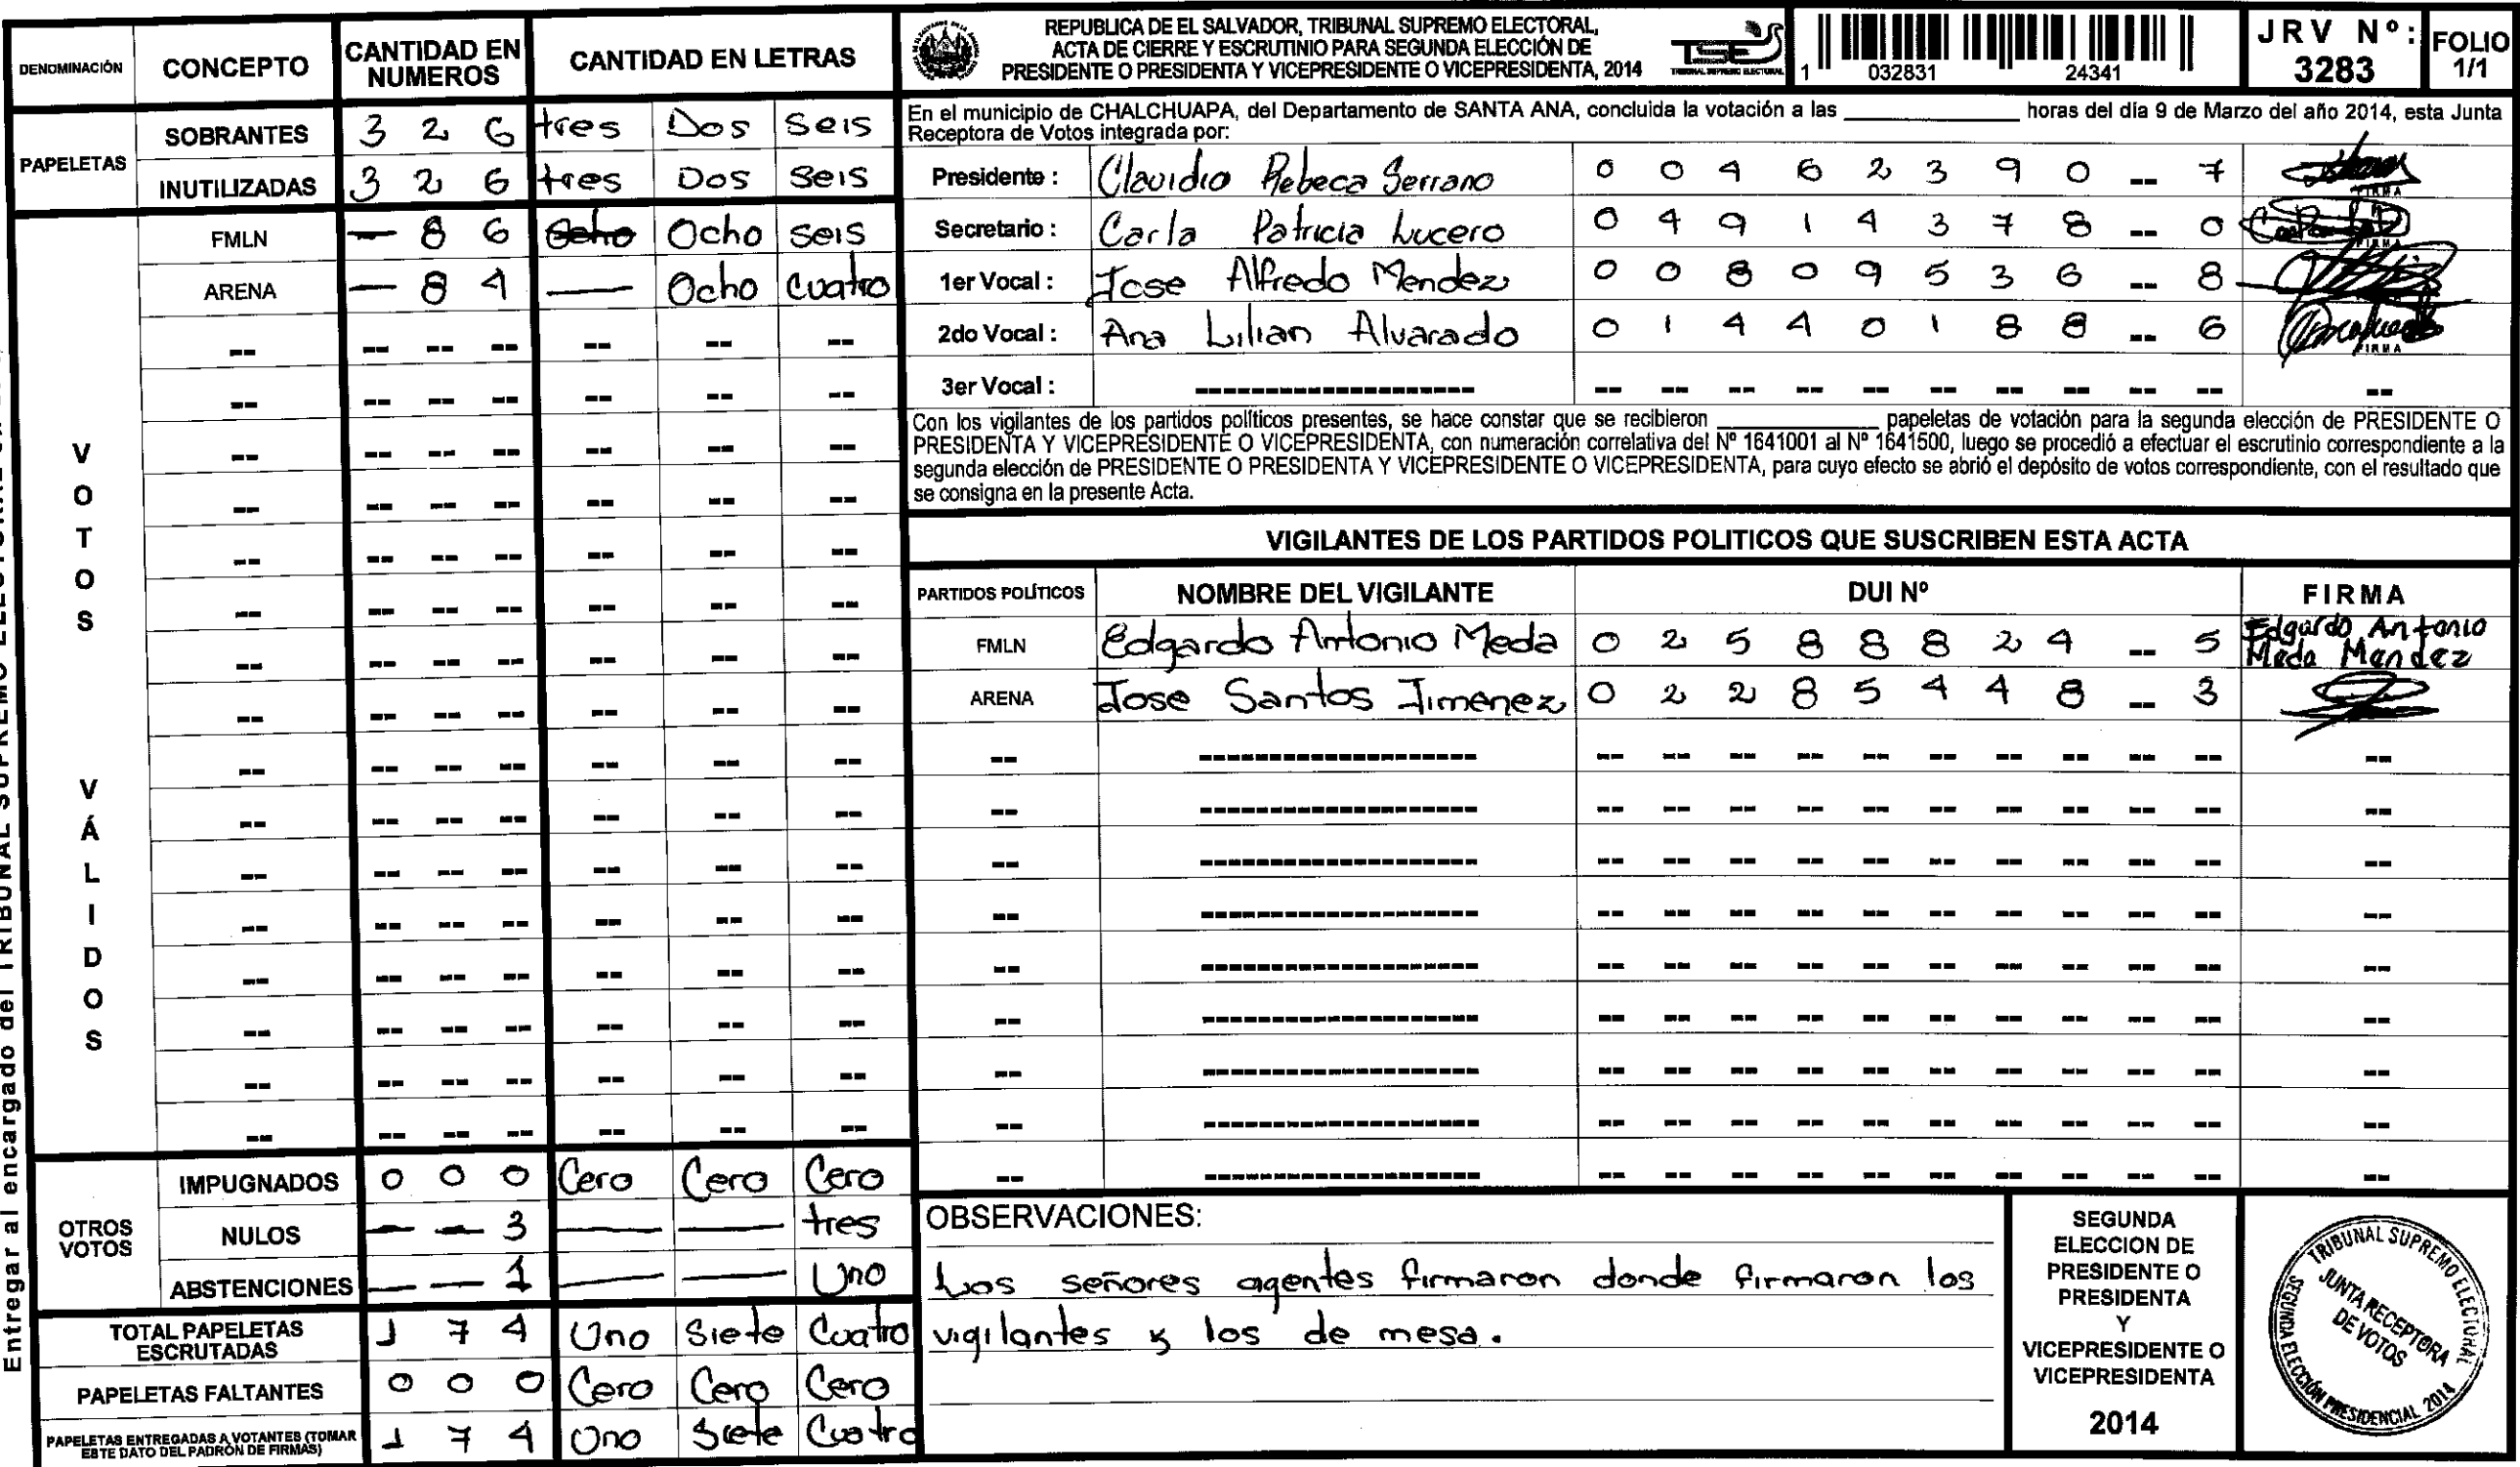 DENOMINACIÓN CONCEPTO CANTIDAD EN NUMEROS CANTIDAD EN LETRAS
PAPELETAS
SOBRANTES 3 2 6 tres Dos Seis
INUTILIZADAS 3 2 6 tres Dos Seis
VOTOS VÁLIDOS
FMLN — 8 6 Ocho Ocho seis
ARENA — 8 4 — Ocho cuatro
OTROS VOTOS
IMPUGNADOS 0 0 0 Cero Cero Cero
NULOS — — 3 — — tres
ABSTENCIONES — — 1 — — Uno
TOTAL PAPELETAS ESCRUTADAS 1 7 4 Uno Siete Cuatro
PAPELETAS FALTANTES 0 0 0 Cero Cero Cero
PAPELETAS ENTREGADAS A VOTANTES (TOMAR ESTE DATO DEL PADRÓN DE FIRMAS) 1 7 4 Uno Siete Cuatro
Entregar al encargado del TRIBUNAL SUPREMO ELECTORAL
REPUBLICA DE EL SALVADOR, TRIBUNAL SUPREMO ELECTORAL,
ACTA DE CIERRE Y ESCRUTINIO PARA SEGUNDA ELECCIÓN DE
PRESIDENTE O PRESIDENTA Y VICEPRESIDENTE O VICEPRESIDENTA, 2014
TSE
TRIBUNAL SUPREMO ELECTORAL
1 032831 24341
JRV Nº: 3283
FOLIO 1/1
En el municipio de CHALCHUAPA, del Departamento de SANTA ANA, concluida la votación a las ________ horas del día 9 de Marzo del año 2014, esta Junta
Receptora de Votos integrada por:
Presidente : Claudia Rebeca Serrano 0 0 4 6 2 3 9 0 -- 7 FIRMA
Secretario : Carla Patricia Lucero 0 4 9 1 4 3 7 8 -- 0 FIRMA
1er Vocal : Jose Alfredo Mendez 0 0 8 0 9 5 3 6 -- 8
2do Vocal : Ana Lilian Alvarado 0 1 4 4 0 1 8 8 -- 6 FIRMA
3er Vocal :
Con los vigilantes de los partidos políticos presentes, se hace constar que se recibieron ________ papeletas de votación para la segunda elección de PRESIDENTE O
PRESIDENTA Y VICEPRESIDENTE O VICEPRESIDENTA, con numeración correlativa del Nº 1641001 al Nº 1641500, luego se procedió a efectuar el escrutinio correspondiente a la
segunda elección de PRESIDENTE O PRESIDENTA Y VICEPRESIDENTE O VICEPRESIDENTA, para cuyo efecto se abrió el depósito de votos correspondiente, con el resultado que
se consigna en la presente Acta.
VIGILANTES DE LOS PARTIDOS POLITICOS QUE SUSCRIBEN ESTA ACTA
PARTIDOS POLÍTICOS NOMBRE DEL VIGILANTE DUI Nº FIRMA
FMLN Edgardo Antonio Meda 0 2 5 8 8 8 2 4 -- 5 Edgardo Antonio Meda Mendez
ARENA Jose Santos Jimenez 0 2 2 8 5 4 4 8 -- 3
OBSERVACIONES:
Los señores agentes firmaron donde firmaron los
vigilantes y los de mesa.
SEGUNDA
ELECCION DE
PRESIDENTE O
PRESIDENTA
Y
VICEPRESIDENTE O
VICEPRESIDENTA
2014
TRIBUNAL SUPREMO ELECTORAL
JUNTA RECEPTORA
DE VOTOS
SEGUNDA ELECCIÓN PRESIDENCIAL 2014